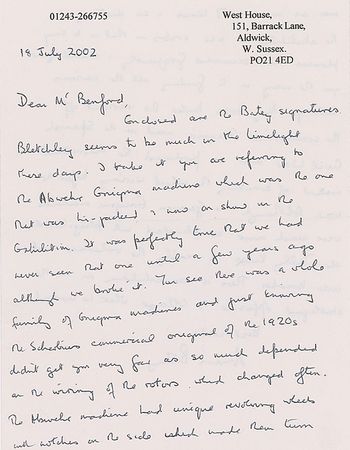 01243-266755
West House,
151, Barrack Lane,
Aldwick,
W. Sussex.
PO21 4ED
18 July 2002
Dear Mr Benford,
Enclosed are the Batey signatures
Bletchley seems to be much in the limelight
these days. I take it you are referring to
the Abwehr Enigma machine which was the one
that was hi-jacked & now on show in the
Exhibition. It was perfectly true that we had
never seen that one until a few years ago
although we broke it. You see there was a whole
family of Enigma machines and just knowing
the Scherbius commercial original of the 1920s
didn't get you very far as so much depended
on the wiring of the rotors which changed often.
The Abwehr machine had unique revolving wheels
with notches on the side which made them turn